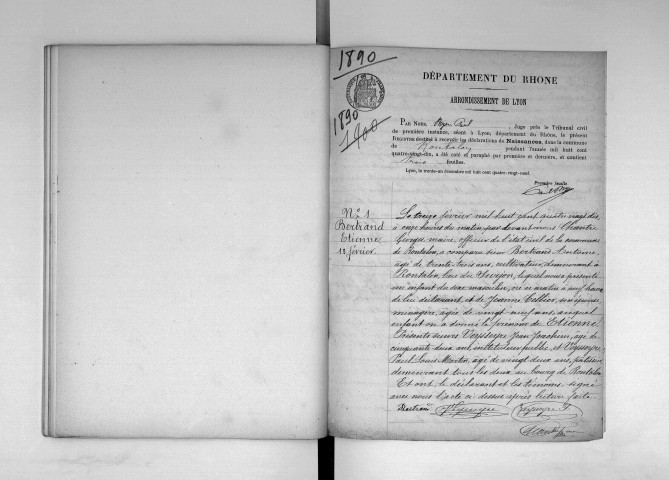 1890
1890
1900
DÉPARTEMENT DU RHONE
ARRONDISSEMENT DE LYON
PAR NOUS, Juge près le Tribunal civil
de première instance, séant à Lyon, département du Rhône, le présent
REGISTRE destiné à recevoir les déclarations de Naissances, dans la commune
de Rontalon pendant l'année mil huit cent
quatre-vingt-dix, a été coté et paraphé par première et dernière, et contient
feuilles.
Lyon, le trente-un décembre mil huit cent quatre-vingt-neuf.
Première feuille
N° 1
Bertrand
Etienne
février
Le treize février mil huit cent quatre vingt dix,
à onze heures du matin, par devant nous Chantre
Georges maire, officier de l'état civil de la commune
de Rontalon, a comparu sieur Bertrand Antoine,
âgé de trente trois ans, cultivateur, demeurant à
Rontalon, lieu du lequel nous a présenté
un enfant du sexe masculin, né ce matin à neuf heures
de lui déclarant, et de Jeanne son épouse
ménagère, âgée de vingt neuf ans, auquel
enfant on a donné le prénom de Etienne.
Présents sieurs Veysseyre Jean Joachim, âgé de
cinquante deux ans, instituteur public, et Veysseyre
Paul Louis Martin, âgé de vingt deux ans,
demeurant tous les deux au bourg de Rontalon
Et ont, le déclarant et les témoins, signé
avec nous l'acte ci dessus après lecture faite.
Bertrand